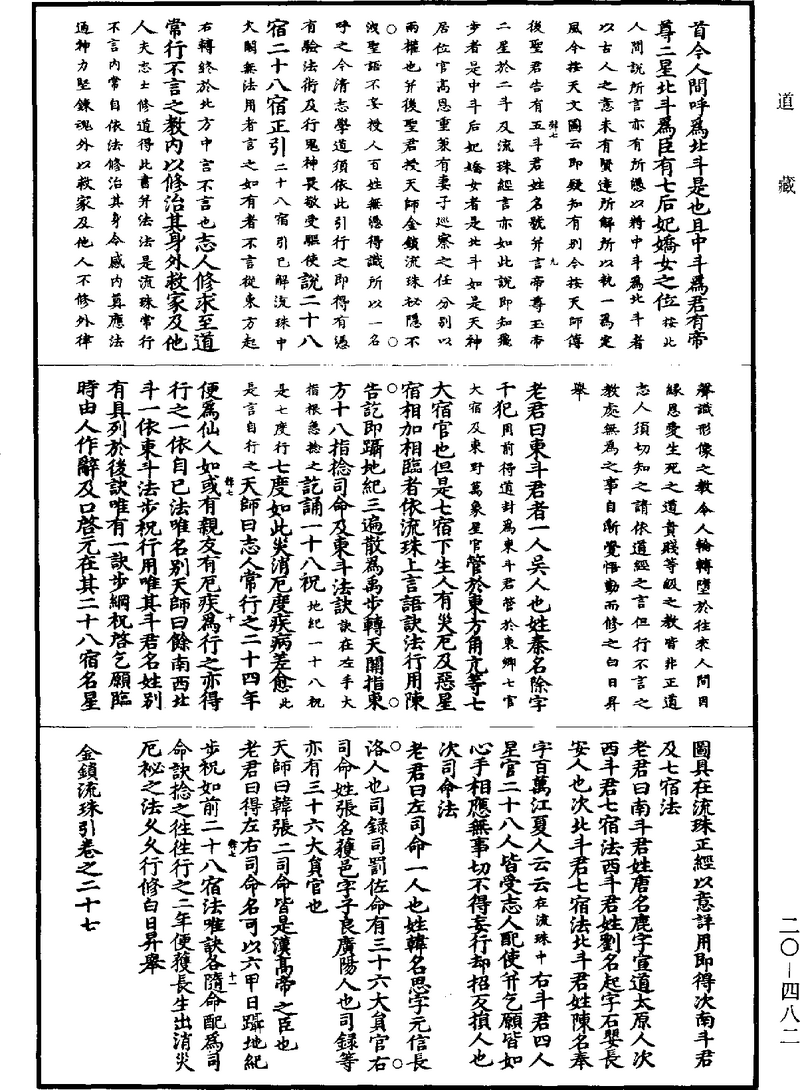 道藏
首今人間呼爲北斗是也且中斗爲君有帝
尊二星北斗爲臣有七后妃嬌女之位按此
人間說所言亦有所憑以將中斗爲北斗者
以古人之意未有賢達所解所以執一爲定
風令按天文圖云即疑知有别今按天師傳
後聖君告有五斗君姓名號并言帝尊玉帝
二星於二斗及流珠經言亦如此說即知飛
步者是中斗后妃嬌女者是北斗如是天神
居位官高恩重兼有妻子巡察之任分别以
兩權也并後聖君授天師金鎖流珠秘隱不
洩聖語不妄授人百姓無憑得識所以一名
呼之今清志學道須依此引行之即得有憑
有驗法術及行鬼神畏敬受驅使說二十八
宿二十八宿正引二十八宿引已解流珠中
大關無法用者言之如有者不言從東方起
右轉終於北方中言不言也志人修求至道
常行不言之教内以修治其身外救家及他
人夫志士修道得此書并法法是流珠常行
不言内常自依法修治其身令感内真應法
通神力堅鍊魂外以救家及他人不修外律
聲識形像之教令人輪轉墮於往來人間因
緣恩愛生死之道貴賤等級之教皆非正道
志人須切知之請依道經之言但行不言之
教處無爲之事自漸覺悟勤而修之白日昇
舉
老君曰東斗君者一人吳人也姓秦名除字
千犯用前得道封爲東斗君管於東鄉七宿
大宿及東野萬象星官管於東方角亢等七
大宿官也但是七宿下生人有災厄及惡星
宿相加相臨者依流珠上言語訣法行用陳
告訖即躡地紀三遍散爲禹步轉天關指東
方十八指捻司命及東斗法訣訣在左手大
指根急捻之訖誦一十八祝地紀一十八祝
是七度行七度如此災消厄度疾病差愈此
是言自行之天師曰志人常行之二十四年
便爲仙人如或有親友有厄疾爲行之亦得
行之一依自已法唯名别天師曰餘南西北
斗一依東斗法步祝行用唯其斗君名姓别
有具列於後訣唯有一訣步綱祝啓乞願臨
時由人作辭及口啓元在其二十八宿名星
圖具在流珠正經以意詳用即得次南斗君
及七宿法
老君曰南斗君姓唐名鹿字宣道太原人次
西斗君七宿法西斗君姓劉名起字石嬰長
安人也次北斗君七宿法北斗君姓陳名奉
字百萬江夏人云云在流珠中右斗君四人
星官二十八人皆受志人配使并乞願皆如
心手相應無事切不得妄行却招反損人也
次司命法
老君曰左司命一人也姓韓名思字元信長
洛人也司錄司罰佐命有三十六大員官右
司命姓張名獲邑字子良廣陽人也司錄等
亦有三十六大員官也
天師曰韓張二司命皆是漢高帝之臣也
老君曰得左右司命名可以六甲日躡地紀
步祝如前二十八宿法唯訣各隨命配爲司
命訣捻之往往行之二年便獲長生出消災
厄秘之法久久行修白日昇舉
金鎖流珠引卷之二十七
二〇—四八二